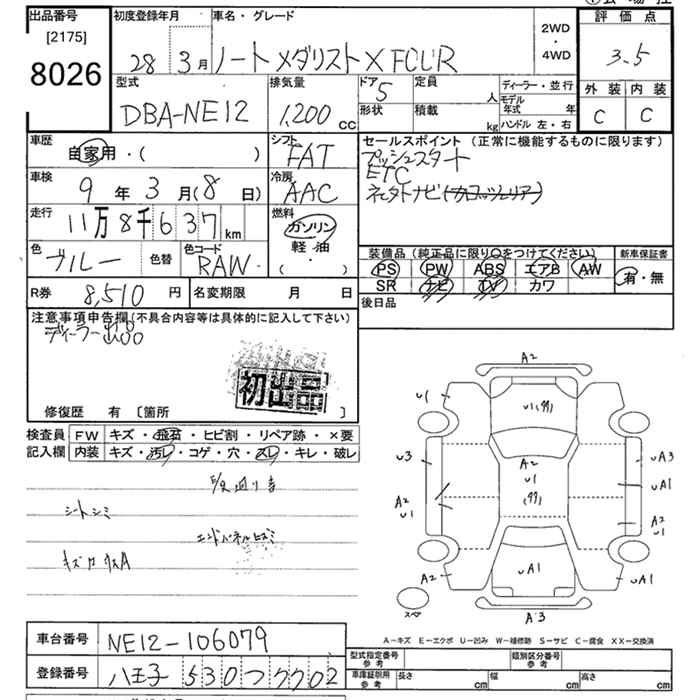 出品番号
[2175]
8026
初度登録年月
28 3月
車名・グレード
ノートメダリストX FOUR
2WD
・
4WD
評価点
3.5
外装 内装
C C
型式
DBA-NE12
排気量
1,200 cc
ドア 5
形状
定員 人
積載 kg
ディーラー・並行
モデル年式 年
ハンドル 左・右
車歴
自家用・( )
シフト
FAT
セールスポイント (正常に機能するものに限ります)
プッシュスタート
ETC
車検
9年3月(8日)
冷房
AAC
走行
11万8千637km
燃料
ガソリン
軽・油
・
( )
色
ブルー
色替
色コード
RAW
装備品(純正品に限り○をつけてください)
PS PW ABS エアB AW
SR ナビ TV カワ
新車保証書
有・無
R券 8,510円
名変期限 月 日
後日品
注意事項申告欄(不具合内容等は具体的に記入して下さい)
ディーラー出品
初出品
修復歴 有 [箇所 ]
検査員
記入欄
FW キズ・飛石・ヒビ割・リペア跡・×要
内装 キズ・汚レ・コゲ・穴・スレ・キレ・破レ
シートシミ
エンドパネルヒズミ
A2
U1
U3
A2
U1
A2
U1
A2
U1
UA3
UA1
A2
U1
UA1
UA1
A2
A3
スペア
A-キズ E-エクボ U-凹み W-補修跡 S-サビ C-腐食 XX-交換済
車台番号 NE12-106079
登録番号 八王子 530 つ 7702
型式指定番号
参考
類別区分番号
参考
車庫証明用
参考
長さ cm
幅 cm
高さ cm